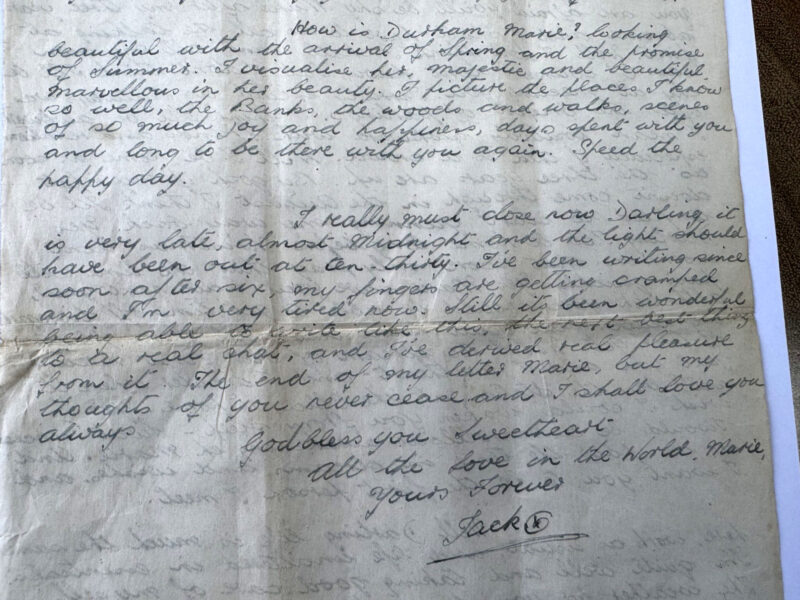 How is Durham Marie? looking
beautiful with the arrival of Spring and the promise
of Summer. I visualise her, majestic and beautiful
marvellous in her beauty. I picture the places I know
so well, the Banks, the woods and walks, scenes
of so much joy and happiness, days spent with you
and long to be there with you again. Speed the
happy day.
I really must close now Darling, it
is very late, almost Midnight and the light should
have been out at ten-thirty. I've been writing since
soon after six, my fingers are getting cramped
and I'm very tired now. Still it been wonderful
being able to write like this, the next best thing
to a real chat, and I've derived real pleasure
from it. The end of my letter Marie, but my
thoughts of you never cease and I shall love you
always
God bless you Sweetheart
All the Love in the World, Marie,
Yours Forever
Jack